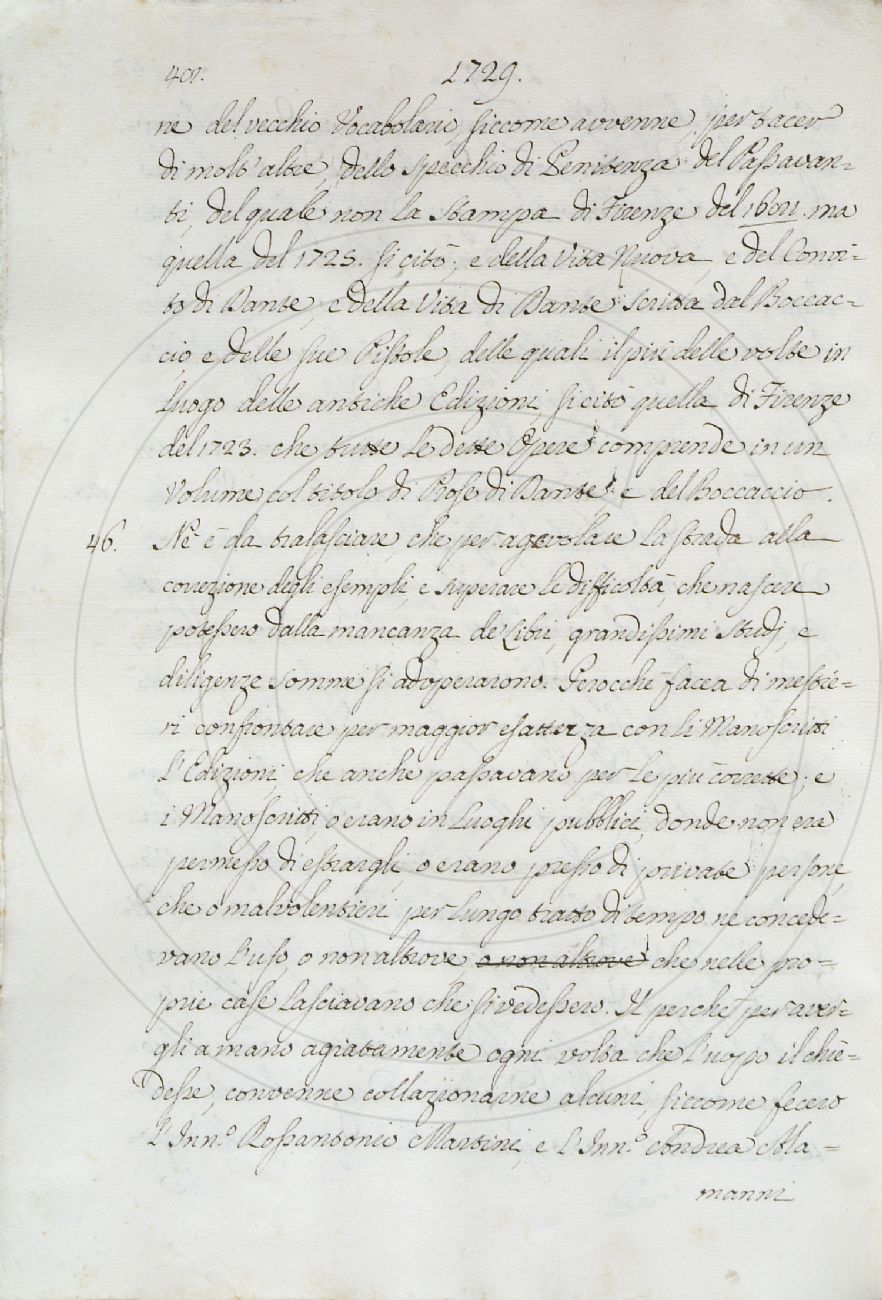 401. 1729.
ne del vecchio Vocabolario, siccome avvenne, per tacer
di molt'altre, dello Specchio di Penitenza del Passavan=
ti, del quale non la Stampa di Firenze del ma
quella del 1725. si citò; e della Vita Nuova, e del Convi=
to di Dante, e della Vita di Dante scritta dal Boccac=
cio, e delle sue Pistole, delle quali il più delle volte in
luogo delle antiche Edizioni, si citò quella di Firenze
del 1723. che tutte le dette Opere comprende in un
Volume col titolo di Prose di Dante, e del Boccaccio.
46. Nè è da tralasciare, che per agevolare la strada alla
correzione degli esempli, e superare le difficoltà, che nascere
potessero dalla mancanza de' Libri, grandissimi studj, e
diligenze somme si adoperarono. Perocchè facea di mestie=
ri confrontare per maggior esattezza con li Manoscritti
l'Edizioni, che anche passavano per le più corrette; e
i Manoscritti, o erano in Luoghi pubblici, donde non era
permesso di estrargli, o erano presso di private persone,
che o malvolentieri per lungo tratto di tempo ne concede=
vano l'uso, o non altrove o non altrove che nelle pro=
prie case lasciavano che si vedessero. Il perchè per aver=
gli a mano agiatamente ogni volta che l'uopo il chie=
desse, convenne collazionarne alcuni siccome fecero
l'Inn.º Rossantonio Martini, e l'Inn.º Andrea Ala=
manni